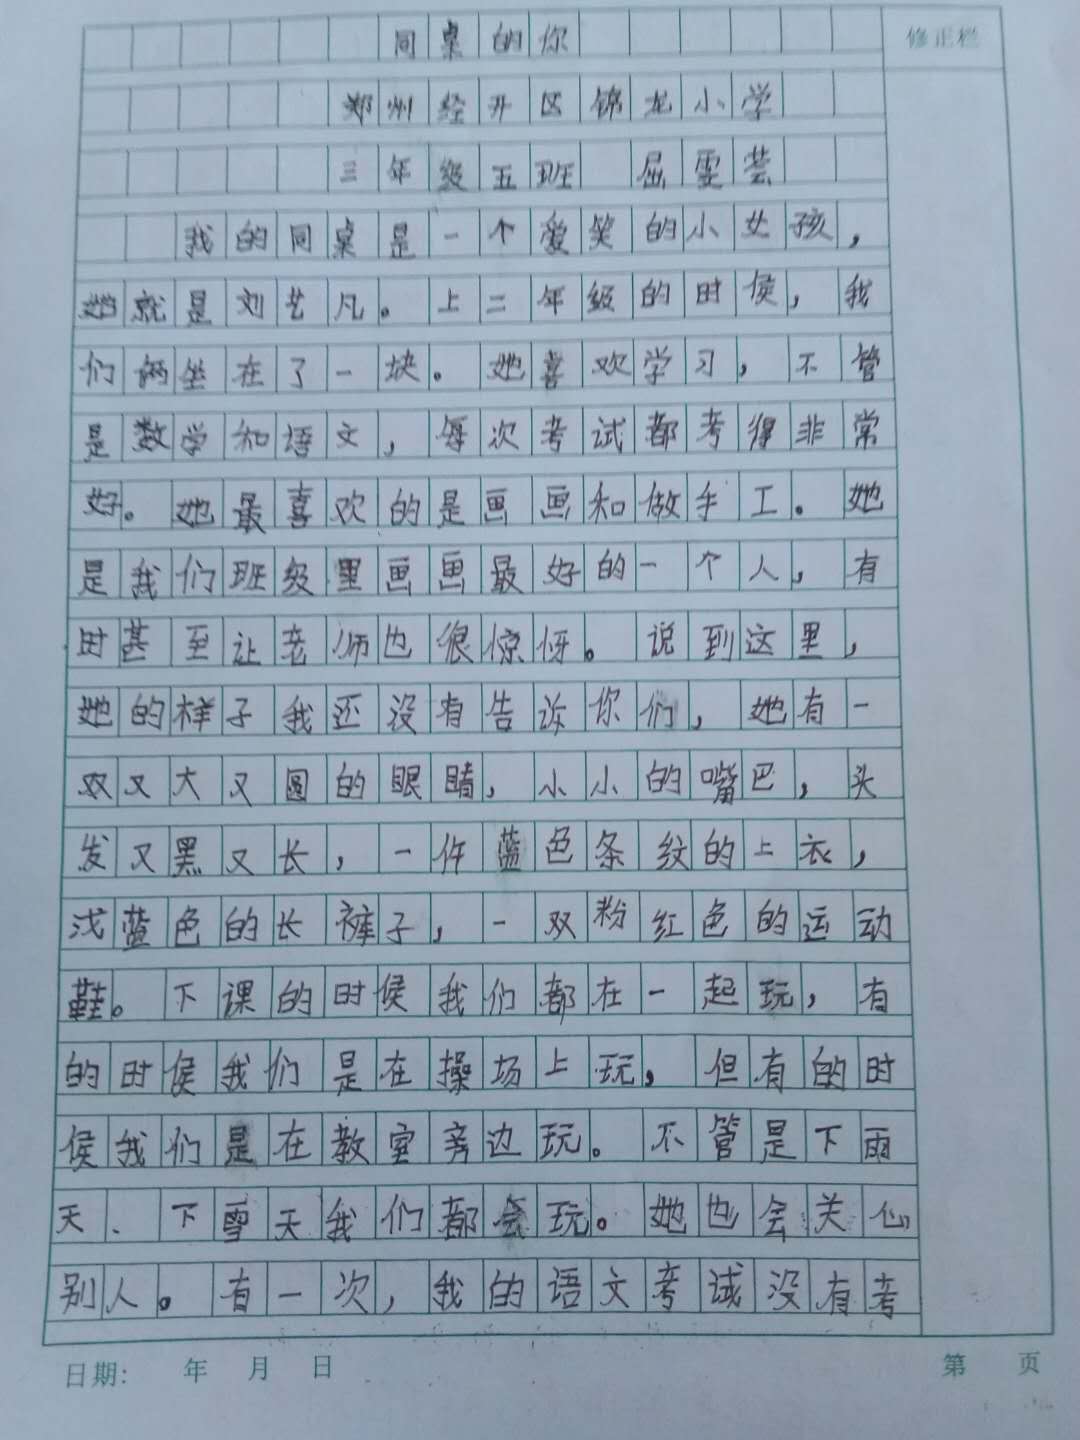 同桌的你
修正栏
郑州经开区锦龙小学
三年级五班 屈雯芸
我的同桌是一个爱笑的小女孩，
她就是刘艺凡。上二年级的时侯，我
们俩坐在了一块。她喜欢学习，不管
是数学和语文，每次考试都考得非常
好。她最喜欢的是画画和做手工。她
是我们班级里画画最好的一个人，有
时甚至让老师也很惊讶。说到这里，
她的样子我还没有告诉你们，她有一
双又大又圆的眼睛，小小的嘴巴，头
发又黑又长，一件蓝色条纹的上衣，
浅蓝色的长裤子，一双粉红色的运动
鞋。下课的时侯我们都在一起玩，有
的时侯我们是在操场上玩，但有的时
侯我们是在教室旁边玩。不管是下雨
天、下雪天我们都会玩。她也会关心
别人。有一次，我的语文考试没有考
日期： 年 月 日
第 页